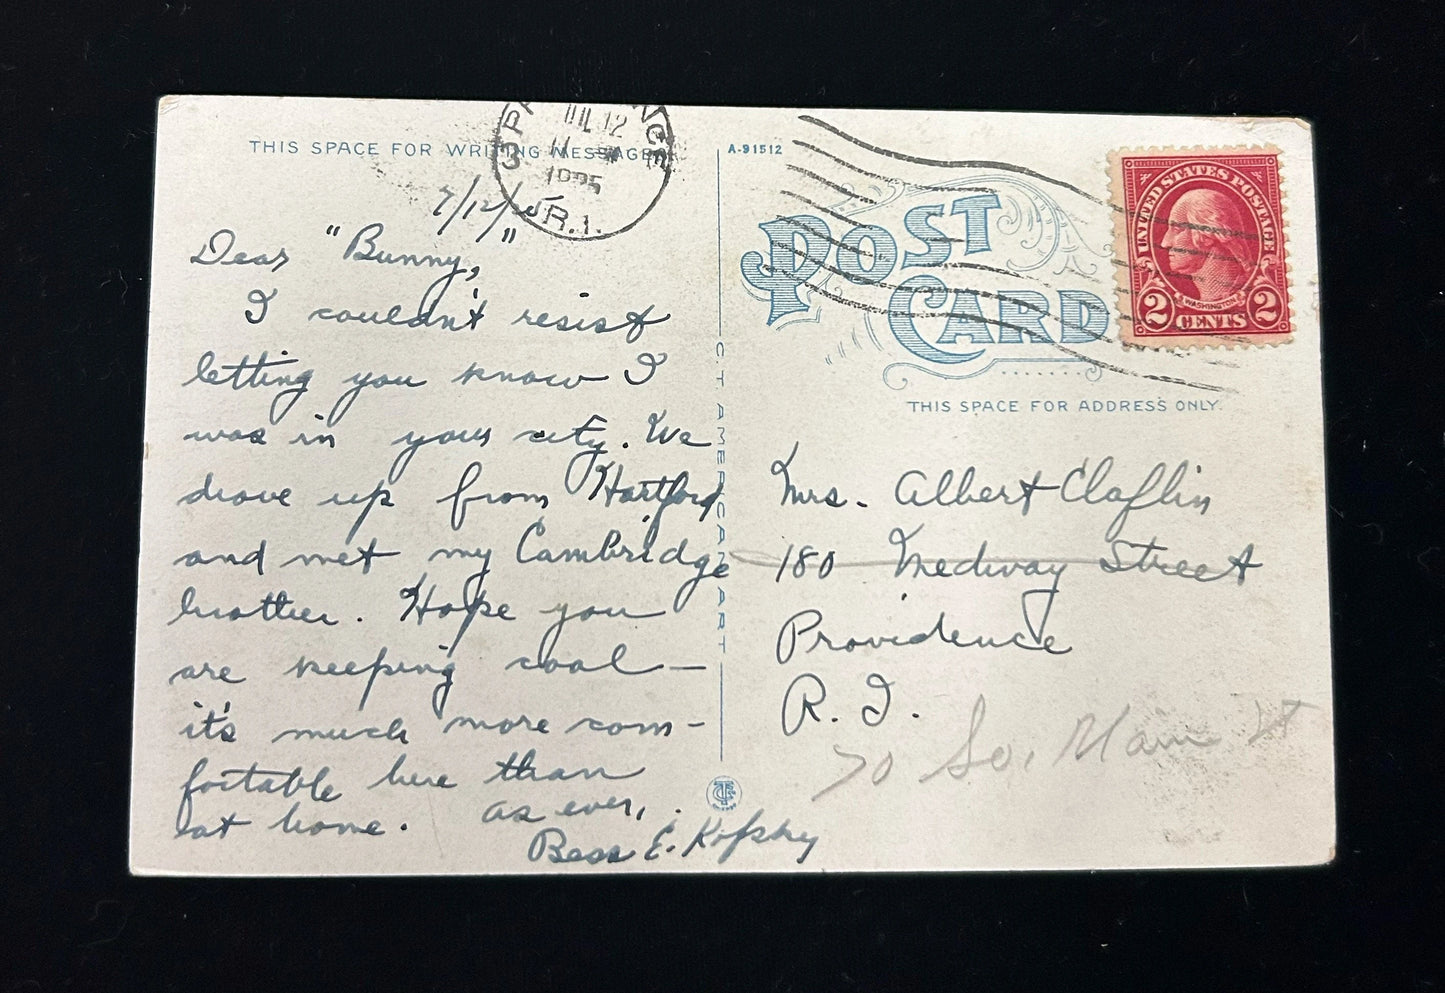 THIS SPACE FOR WRITING MESSAGE
JUL 12
1925
R.I.
7/12/25
Dear "Bunny,"
I couldn't resist
letting you know I
was in your city. We
drove up from Hartford
and met my Cambridge
brother. Hope you
are keeping cool —
it's much more com-
fortable here than
at home. as ever,
Bess E. Kofsky
C.T. AMERICAN ART
A-91512
POST
CARD
UNITED STATES POSTAGE
WASHINGTON
2 CENTS 2
THIS SPACE FOR ADDRESS ONLY.
Mrs. Albert Claflin
180 Medway Street
Providence
R. I.
70 So. Main St